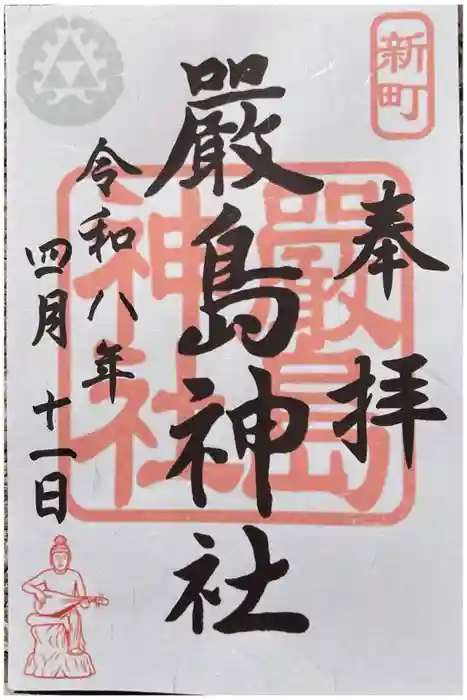 新町
奉拝
嚴島神社
嚴島
神社
令和八年
四月十一日